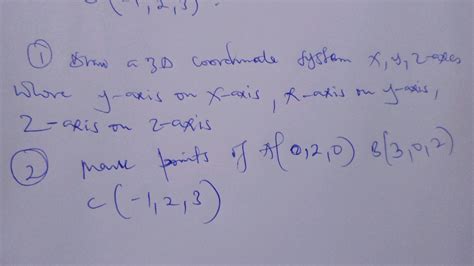 C(-1,2,3).
① Draw a 3D coordinate system x, y, z-axes
where y-axis on x-axis, x-axis on y-axis,
z-axis on z-axis
② Mark points of A(0,2,0) B(3,0,2)
C(-1,2,3)